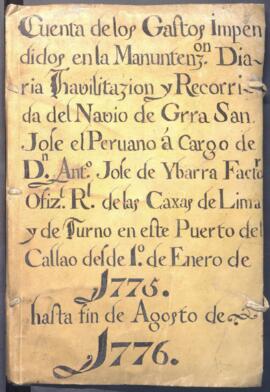 Cuenta de los Gastos Impen
didos en la Manutenz.on Dia-
ria Havilitazion y Recorri-
da del Navio de Grra San
Jose el Peruano á Cargo de
D.n Ant.o Jose de Ybarra Factr
Ofiz.l R.l de las Caxas de Lima
y de Turno en este Puerto del
Callao desde 1.o de Enero de
1775.
hasta fin de Agosto de
1776.